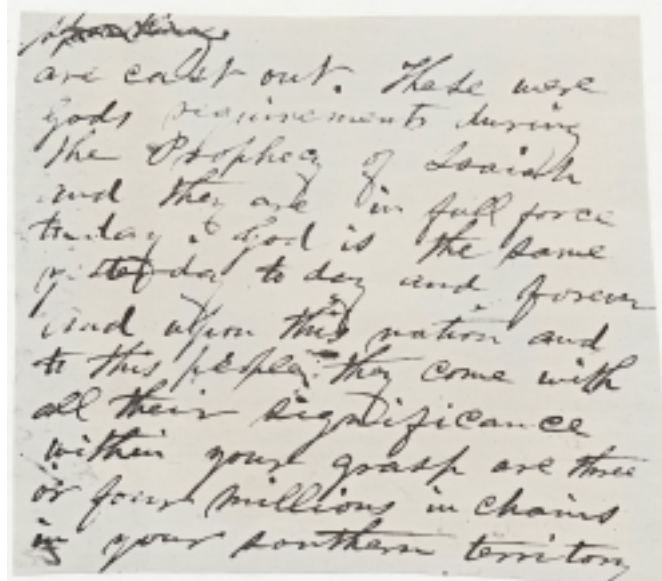 are cast out. These were
gods requirements during
the Prophecy of Isaiah
and they are in full force
today. God is the same
yesterday to day and forever
And upon this nation and
to this people they come with
all their significance
within your grasp are three
or four millions in chains
in your southern territory